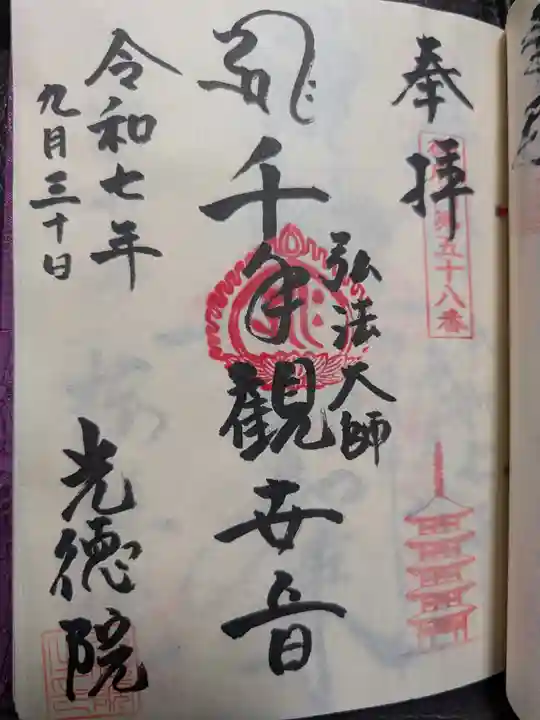 奉拝
第五十八番
弘法大師
千手観世音
令和七年
九月三十日
光徳院